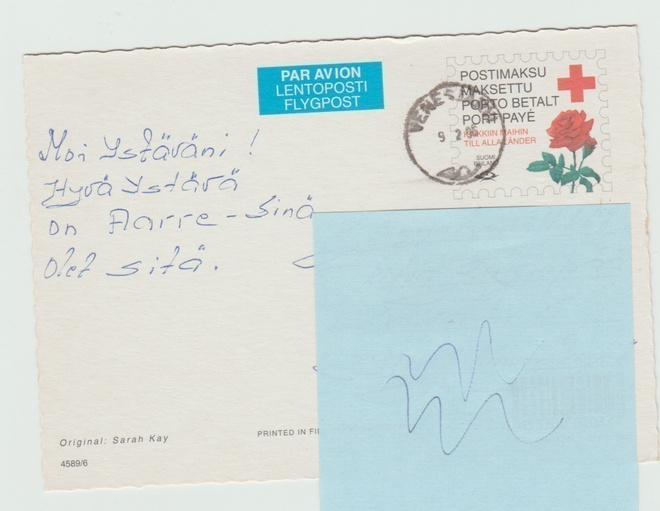 PAR AVION
LENTOPOSTI
FLYGPOST
POSTIMAKSU
MAKSETTU
PORTO BETALT
PORT PAYÉ
KAIKKIIN MAIHIN
TILL ALLA LÄNDER
SUOMI
FINLAND
9 2
Moi Ystäväni !
Hyvä Ystävä
on Aarre - Sinä
Olet sitä.
Original: Sarah Kay
PRINTED IN FI
4589/6